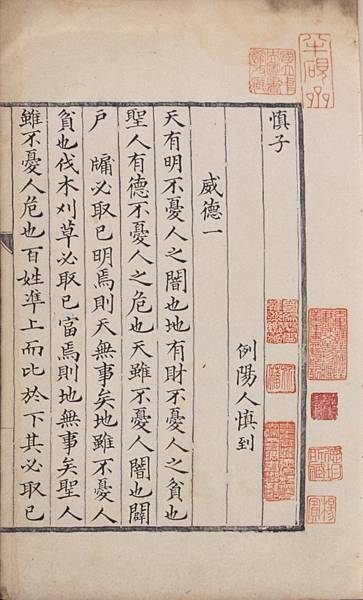 慎子
例陽人慎到
威德一
天有明不憂人之闇也地有財不憂人之貧也
聖人有德不憂人之危也天雖不憂人闇也闢
戶牖必取已明焉則天無事矣地雖不憂人
貧也伐木刈草必取已富焉則地無事矣聖人
雖不憂人危也百姓準上而比於下其必取已